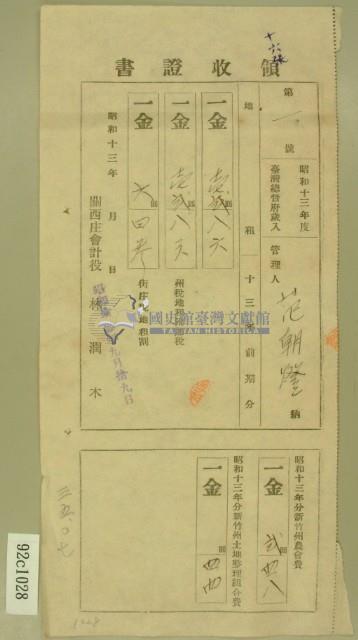 十六張
領收證書
第一號
昭和十三年度
臺灣總督府歲入
管理人 范朝燈 納
地租 十三年前期分
一金 壹貳八六
一金 壹貳八六
州稅地租附加稅
一金 六四參
街庄
地租割
昭和十三年 月 日
九月拾九日
關西庄會計役 林 潤 木
昭和十三年分新竹州農會費
一金 貳四八
昭和十三年分新竹州土地整理組合費
一金 四四
三五.〇七
國史館臺灣文獻館
TAIWAN HISTORICA
92c1028
1028